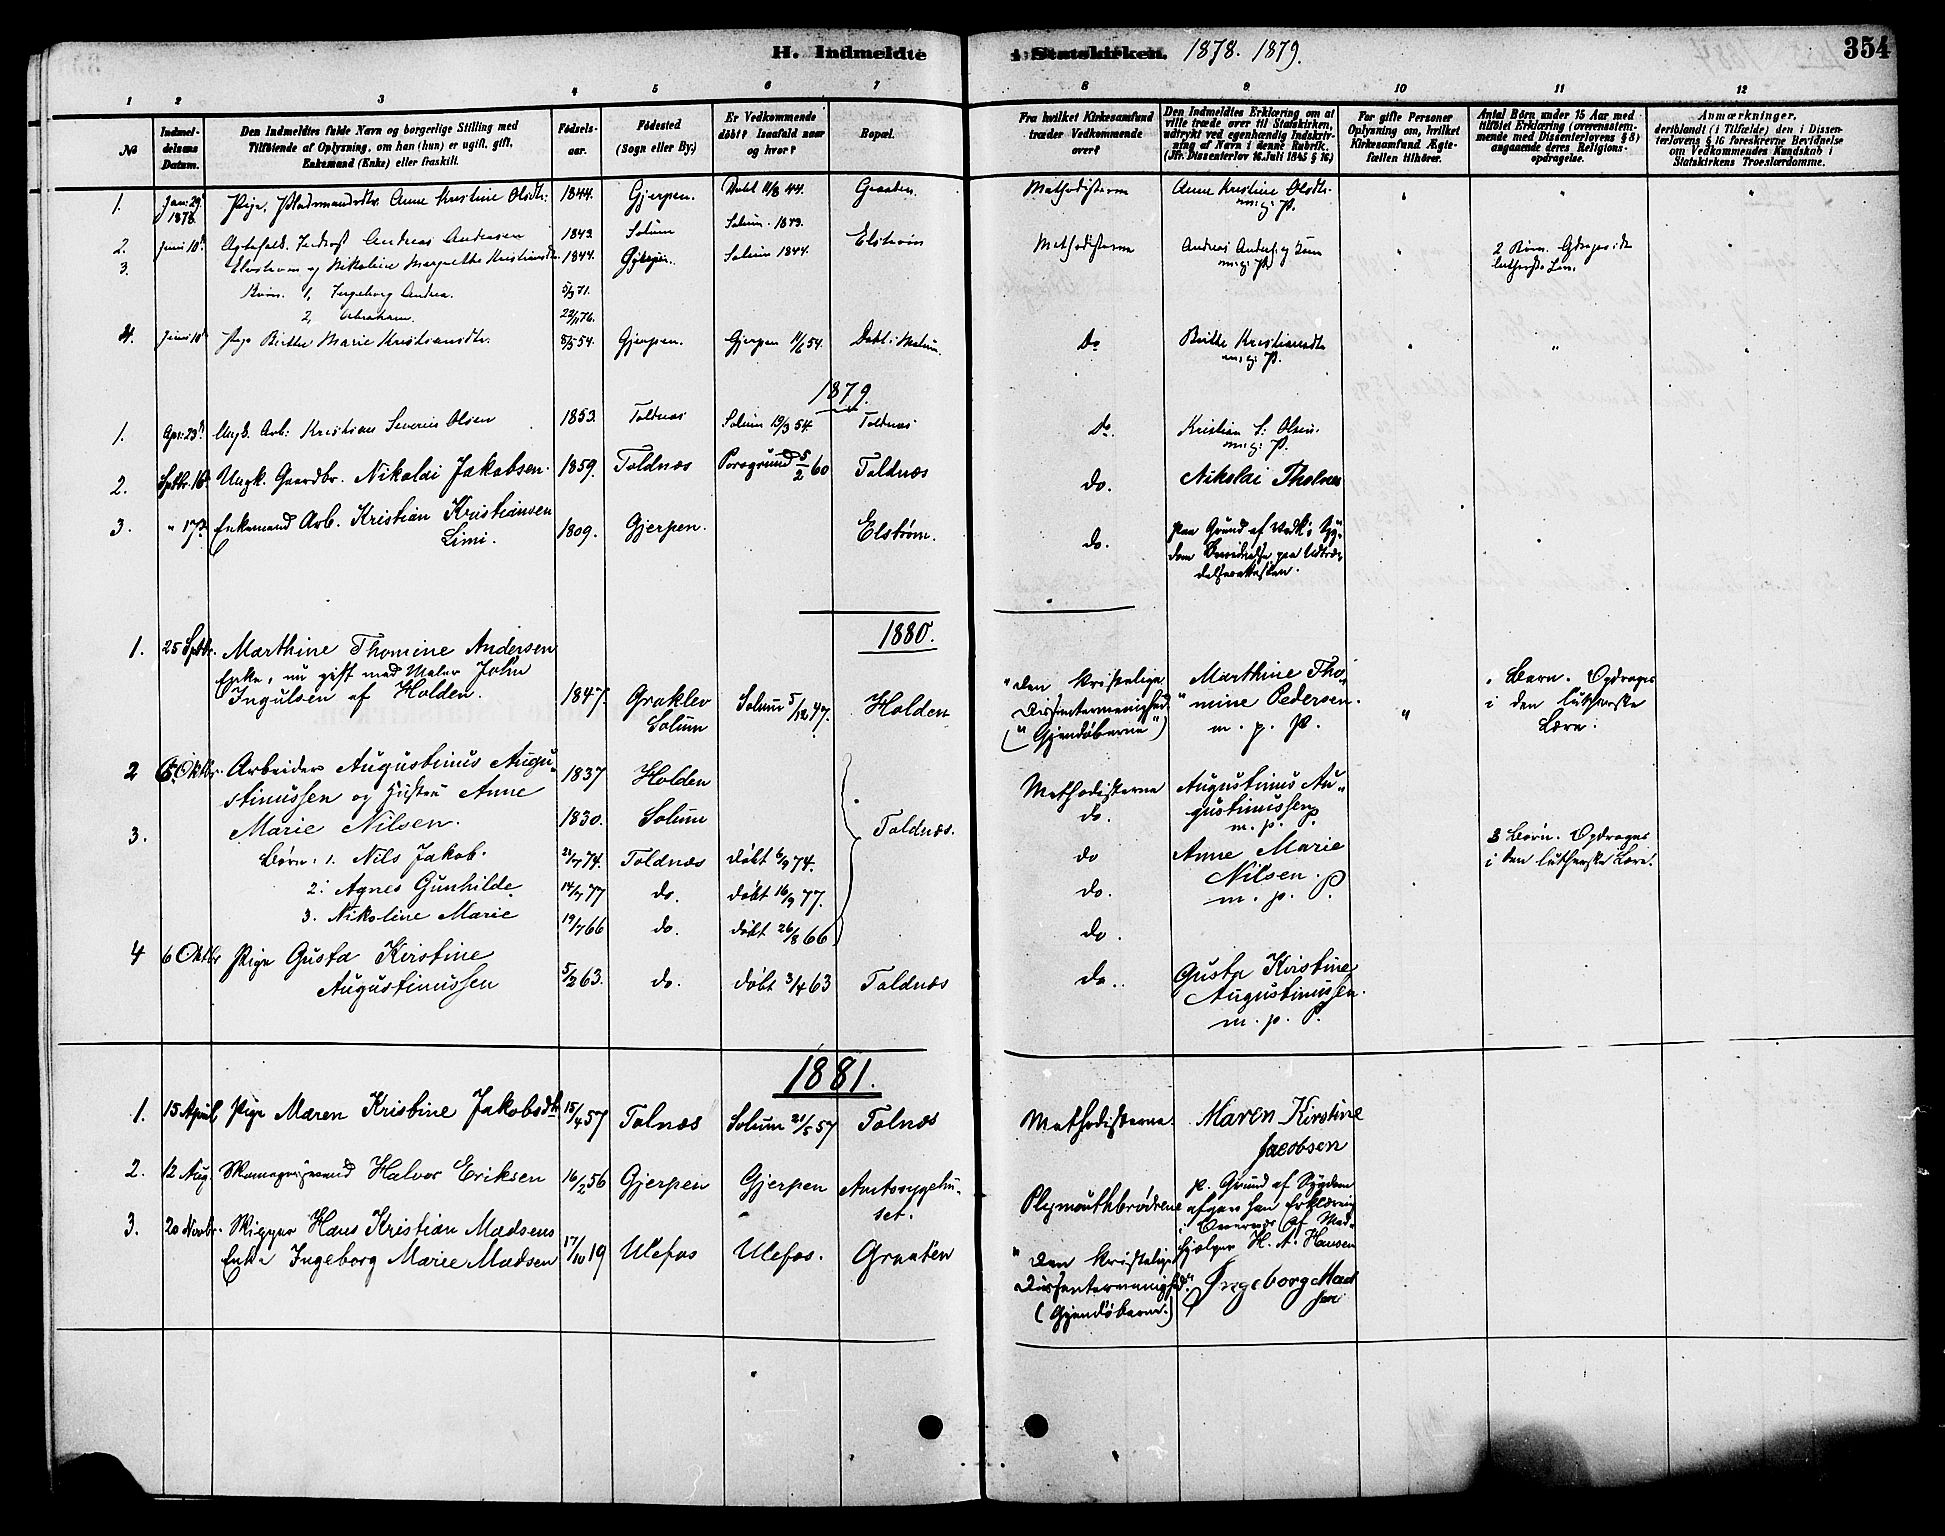 H. Indmeldte i Statskirken. 1878. 1879.
354
1 2 3 4 5 6 7 8 9 10 11 12
No
Indmel-
delsens
Datum.
Den Indmeldtes fulde Navn og borgerlige Stilling med
Tilføiende af Oplysning, om han (hun) er ugift, gift,
Enkemand (Enke) eller fraskilt.
Fødsels-
aar.
Fødested
(Sogn eller By.)
Er Vedkommende
døbt? Isaafald naar
og hvor?
Bopæl.
Fra hvilket Kirkesamfund
træder Vedkommende
over?
Den Indmeldtes Erklæring om at
ville træde over til Statskirken,
udtrykt ved egenhændig Indskriv-
ning af Navn i denne Rubrik.
(Jfr. Dissenterlov 16. Juli 1845 § 16)
For gifte Personer
Oplysning om, hvilket
Kirkesamfund Ægte-
fællen tilhører.
Antal Børn under 15 Aar med
tilføiet Erklæring (overensstem-
mende med Dissenterlovens § 8)
angaaende deres Religions-
opdragelse.
Anmærkninger,
deriblandt (i Tilfælde) den i Dissen-
terlovens § 16 foreskrevne Bevidnelse
om Vedkommendes Kundskab i
Statskirkens Troeslærdomme.
1. Jan: 29 1878. Pige. Pladsmandsdtr. Anne Kristine Olsdtr: 1844. Gjerpen. Døbt 11/8 44. Graaten. Methodisterne Anne Kristine Olsdtr.
m. p. P.
2. Juni 10d Ægtefolk. Andreas Andersen 1843. Solum Solum. 1843. Elstrøm Methodisterne Andreas Anders. 2 Børn. Opdrages i den
3. Elvstrøm og Nikoline Margrethe Kristiansdtr. 1844. Gjerpen. Solum 1844. m. p. P. lutherske Lære.
Børn. 1, Ingeborg Andrea. 5/3 71.
2, Abraham. 22/1 76.
4. Juni 10d Pige Birthe Marie Kristiansdtr. 8/5 54. Gjerpen. Gjerpen 11/6 54. Do Birthe Kristiansdtr
m. p. P.
1879.
1. Apr: 23d Ungk. Arb: Kristian Severin Olsen 1853. Toldnæs Solum 19/3 54. Toldnæs Do. Kristian S: Olsen.
m. p. P.
2. Sptbr. 16d Ungk. Gaardbr. Nikolai Jakobsen. 1859. Toldnæs Porsgrund 5/2 60 Toldnæs do. Nikolai Tholnes
3. " 17d Enkemand Arb. Kristian Kristiansen
Limi. 1809. Gjerpen. Elstrøm. do. Paa Grund af Vedk's Syg-
dom
1880.
1. 25 Sptbr. Marthine Thomine Andersen
Enke, nu gift med Maler John
Ingulsen af Holden. 1847. Graklev
Solum Solum 5/12 47. Holden
"Den kristelige
Dissentermenighed"
("Gjendøberne") Marthine Tho-
mine Pedersen.
m. p. P. " Børn. Opdrages
i den lutherske
Lære.
2 6. Oktbr. Arbeider Augustinus Augu-
stinussen og Hustru Anne
3. Marie Nilsen. 1837 Holden
1830. Solum Toldnæs. Methodisterne
do. Augustinus Au-
gustinussen
m. p. P.
Børn: 1. Nils Jakob. 21/7 74. Toldnæs døbt 6/9 74. do Anne Marie
Nilsen.
m. p. P. 3 Børn. Opdrages
i den lutherske Lære.
2. Agnes Gunhilde 14/7 77 do. døbt 16/9 77. do.
3. Nikoline Marie 19/7 66 do. døbt 26/8 66 do.
4 6 Oktbr Pige Gusta Kirstine
Augustinussen 5/2 63. do. døbt 3/4 63 Toldnæs do.. Gusta Kirstine
Augustinussen.
m. p. P.
1881.
1. 15 April Pige Maren Kristine Jakobsdtr 15/4 57 Tolnæs Solum 21/5 57 Tolnæs Methodisterne. Maren Kirstine
Jacobsen
2. 12 Aug. Halvor Eriksen 16/2 56 Gjerpen Gjerpen Amtssygehu-
set. Plymouthbrødrene p. Grund af Sygdom
afgav han Erklæring
i Overvær af Med-
hjælper H. A. Hansen
3. 20 Novbr. Skipper Hans Kristian Madsens
Enke Ingeborg Marie Madsen 17/10 19 Ulefos Ulefos. Graaten "Den kristelige
Dissentermenighed."
(Gjendøberne.) Ingeborg Mad
sen